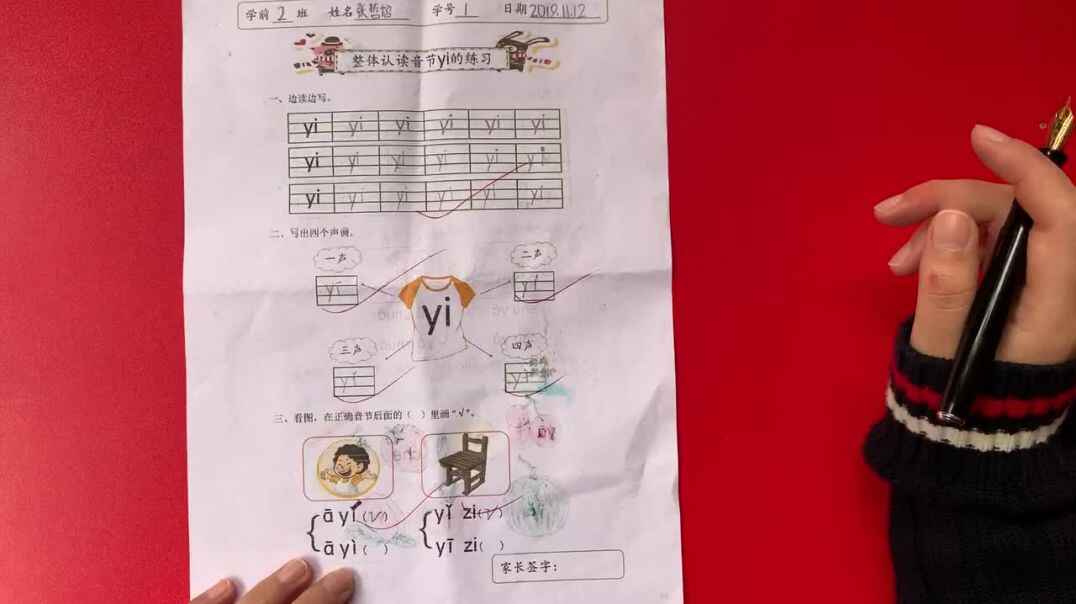 学前 2 班 姓名 张哲焓 学号 1 日期 2019.11.12
整体认读音节yi的练习
一、边读边写。
yi yi yi yi yi yi
yi yi yi yi yi yi
yi yi yi yi yi yi
二、写出四个声调。
一声 二声
yī yí
yi
三声 四声
yǐ yì
三、看图，在正确音节后面的（ ）里画“√”。
ā yí (√) yǐ zi (√)
ā yì ( ) yī zi ( )
家长签字：